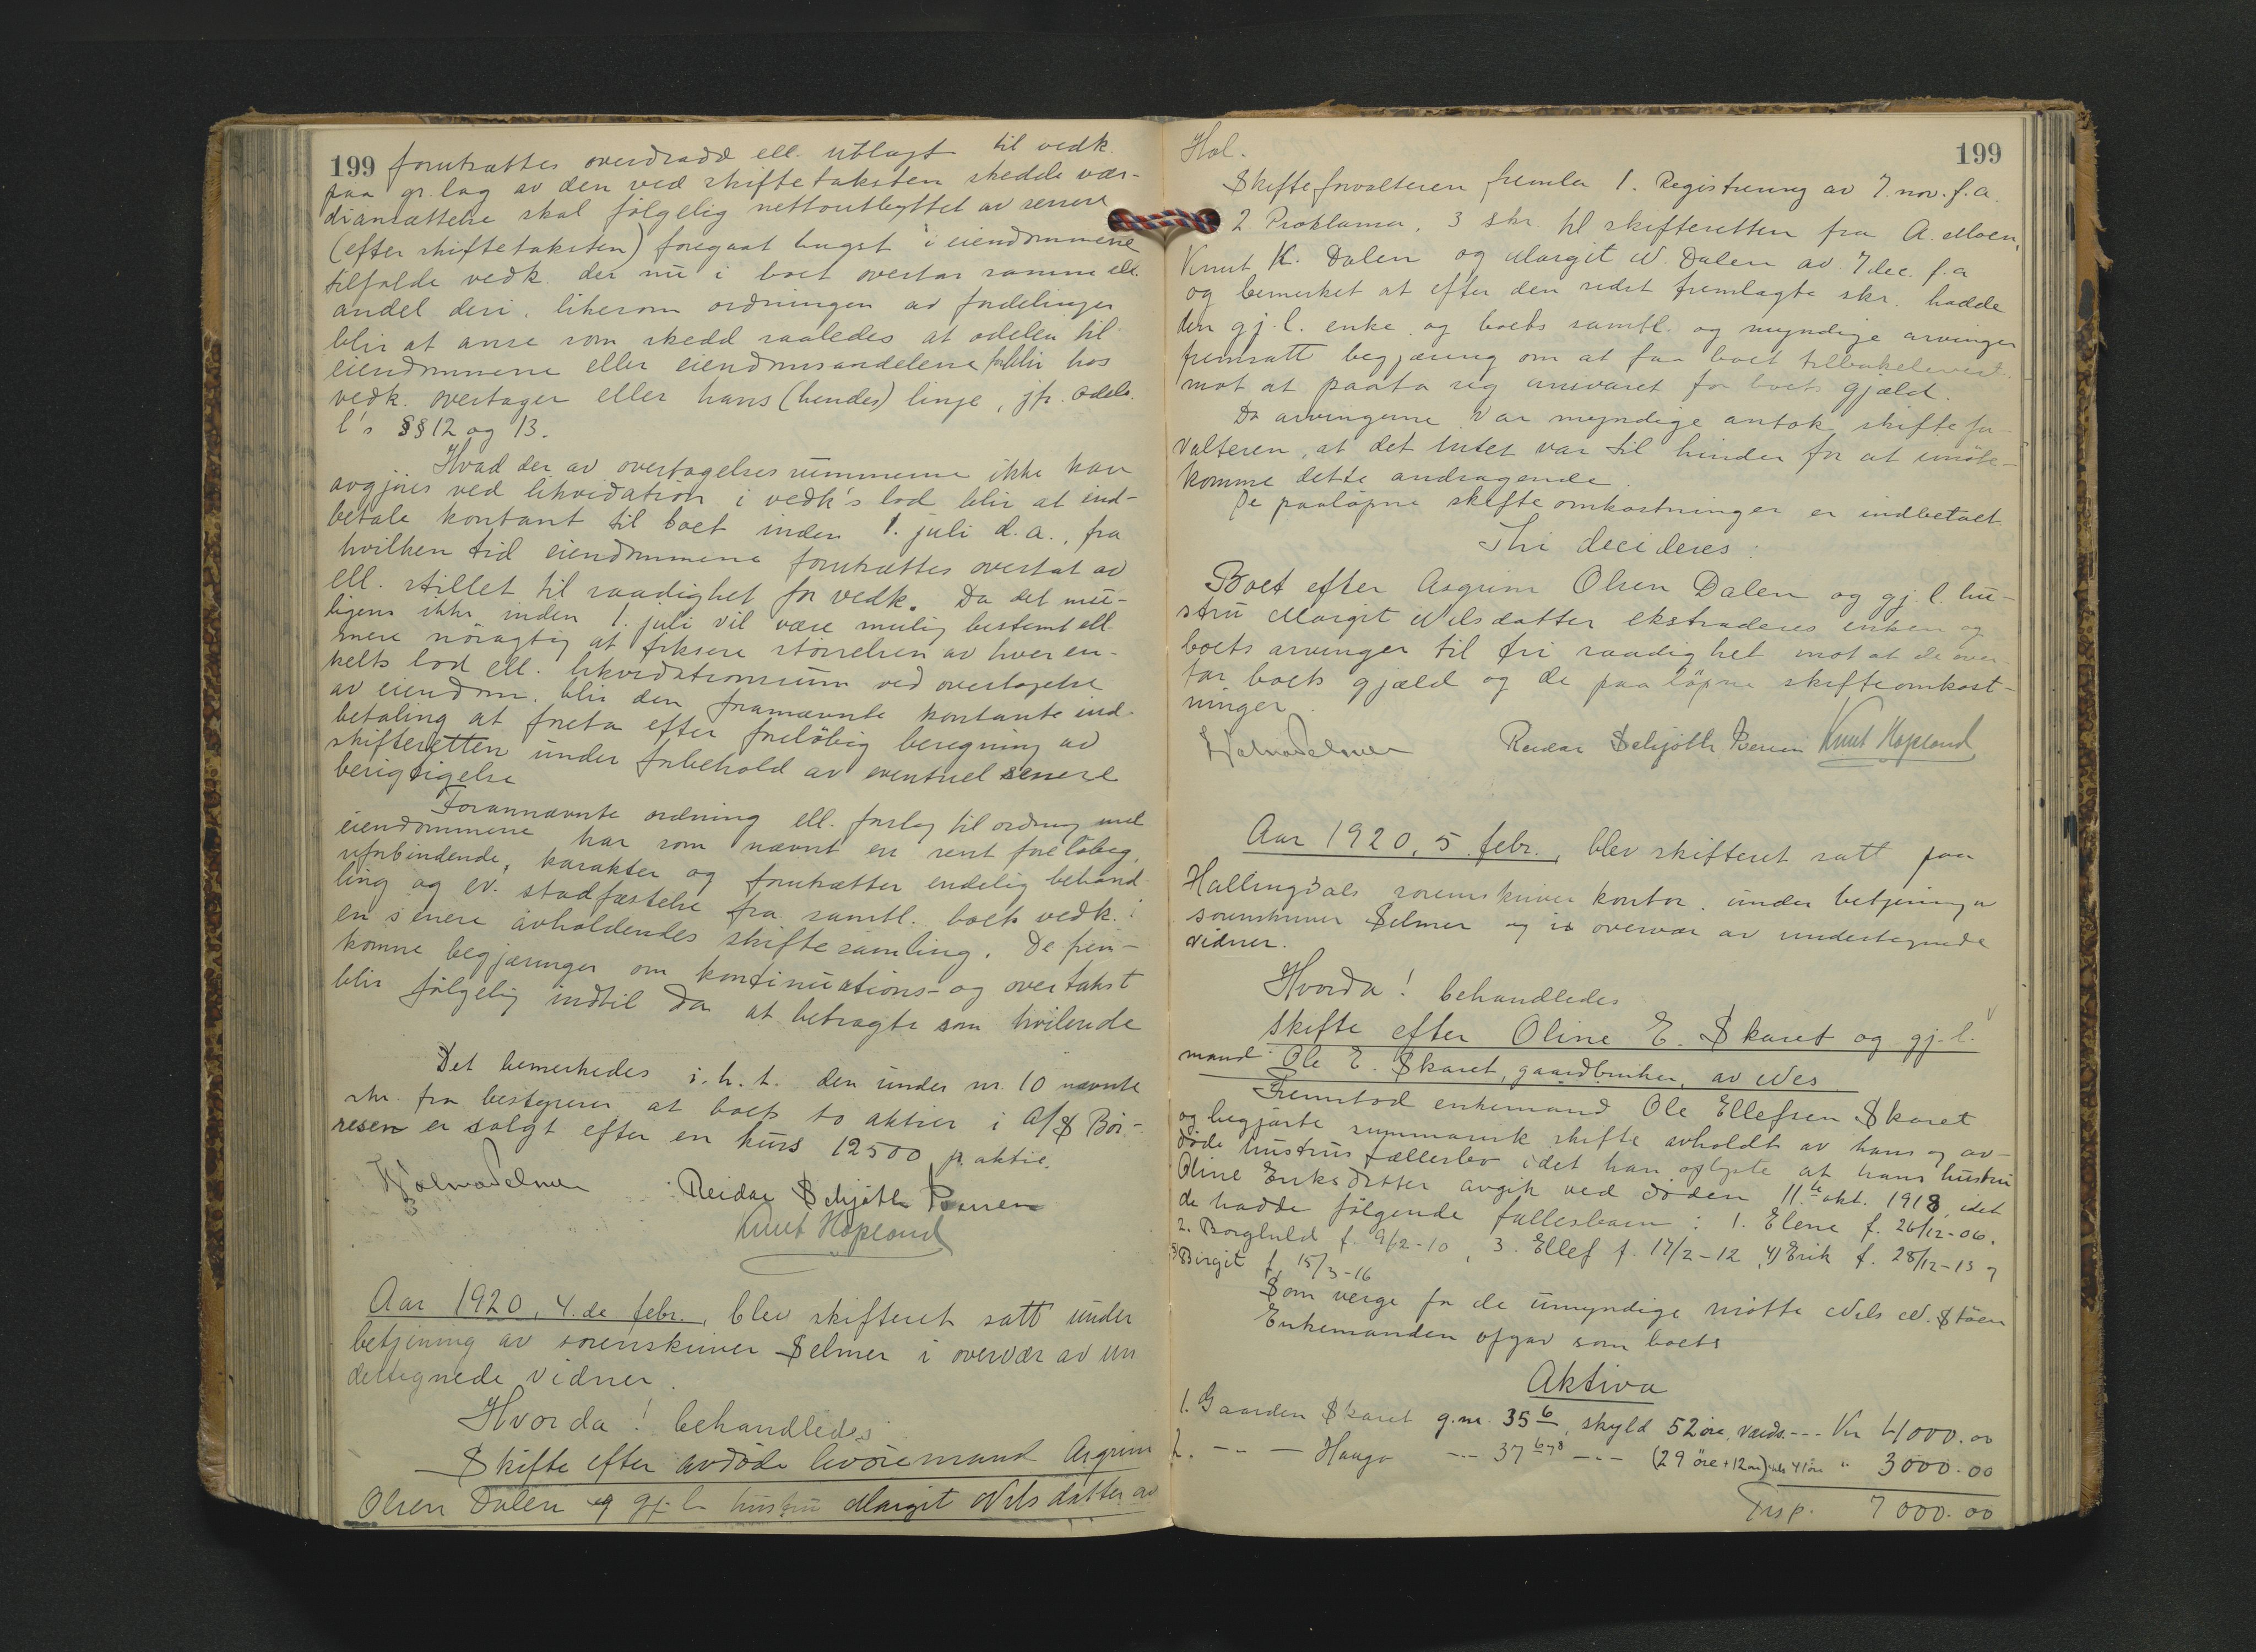 199 forutsættes overdradd ell. utlagt til vedk.
paa gr.lag av den ved skiftetaksten skedde vær-
diansættelse skal følgelig nettoutbyttet av senere
(efter skiftetaksten) foregaat hugst i eiendommene
tilfalde vedk. der nu i boet overtar samme ell.
andel deri, likesom ordningen av fordelinger
blir at anse som skedd saaledes at odelen til
eiendommene eller eiendomsandelene forblir hos
vedk. overtager eller hans (hendes) linje, jfr. odels.
l's §§ 12 og 13.
Hvad der av overtagelsessummerne ikke kan
avgjøres ved likvidation i vedk's lod blir at ind-
betale kontant til boet inden 1. juli d.a., fra
hvilken tid eiendommene forutsættes overtat av
ell. stillet til raadighet for vedk. Da det mu-
ligens ikke inden 1. juli vil være mulig bestemt ell.
mere nøiagtig at fiksere størrelsen av hver en-
kelts lod ell. likvidationssum ved overtagelse
av eiendom. blir den framævnte kontante ind-
betaling at foreta efter foreløbig beregning av
skifteretten under forbehold av eventuel senere
berigtigelse
Forannævnte ordning ell. forslag til ordning med
eiendommene har som nævnt en rent foreløbig,
uforbindende, karakter og forutsætter endelig behand-
ling og ev. stadfæstelse fra samtl. boets vedk. i
en senere avholdendes skiftesamling. De frem-
komne begjæringer om kontinuations- og overtakst
blir følgelig indtil da at betragte som hvilende
Det bemerkedes i.h.t. den under nr. 10 nævnte
skr. fra bestyrerer at boets to aktier i A/S Bør-
resen er solgt efter en kurs 12500 p. aktie.
Hjalmar Selmer Reidar Schjøth Iversen
Knut Hopland
Aar 1920, 4.de febr., blev skifteret satt under
betjening av sorenskriver Selmer i overvær av un
dertegnede vidner.
Hvorda! behandledes
Skifte efter avdøde livøremand Asgrim
Olsen Dalen og gj.l. hustru Margit Nilsdatter av
Hol. 199
Skifteforvalteren fremla 1. Registrering av 7. nov. f.a.
2. Proklama, 3 skr. til skifteretten fra A. Moen,
Knut K. Dalen og Margit N. Dalen av 7 dec. f.a
og bemerket at efter den sidst fremlagte skr. hadde
den gj.l. enke og boets samtl. og myndige arvinger
fremsatt begjæring om at faa boet tilbakelevert
mot at paata sig ansvaret for boets gjæld.
Da arvingerne var myndige antok skiftefor-
valteren, at det intet var til hinder for at imøte-
komme dette andragende.
De paaløpne skifteomkostninger er indbetalt.
Thi decideres:
Boet efter Asgrim Olsen Dalen og gj.l. hu-
stru Margit Nilsdatter ekstraderes enken og
boets arvinger til fri raadighet mot at de over-
tar boets gjæld og de paaløpne skifteomkost-
ninger.
Hjalmar Selmer Reidar Schjøth Iversen Knut Hopland
Aar 1920, 5. febr., blev skifteret satt paa
Hallingdals sorenskriverkontor under betjening av
sorenskriver Selmer og i overvær av undertegnede
vidner.
Hvorda! behandledes
skifte efter Oline E. Skaret og gj.l.
mand Ole E. Skaret, gaardbruker, av Nes
Fremstod enkemand Ole Ellefsen Skaret
og begjærte summarisk skifte avholdt av hans og av-
døde hustrus fællesbo idet han oplyste at hans hustru
Oline Eriksdatter avgik ved døden 11.te okt. 1918, idet
de hadde følgende fællesbarn: 1. Elene f. 26/12-06.
2. Borghild f. 9/2-10, 3. Ellef f. 17/2-12, 4) Erik f. 28/12-13 og
5) Birgit f. 15/3-16
Som verge for de umyndige møtte Nils N. Støen
Enkemanden opgav som boets
Aktiva
1. Gaarden Skaret g.nr. 35 6, skyld 52 øre, værds. --- Kr 4000.00
2. -- — Haugo --- 37 6 7 8 --- (29 øre + 12 øre) tils. 41 øre " 3000.00
Trsp. 7000.00